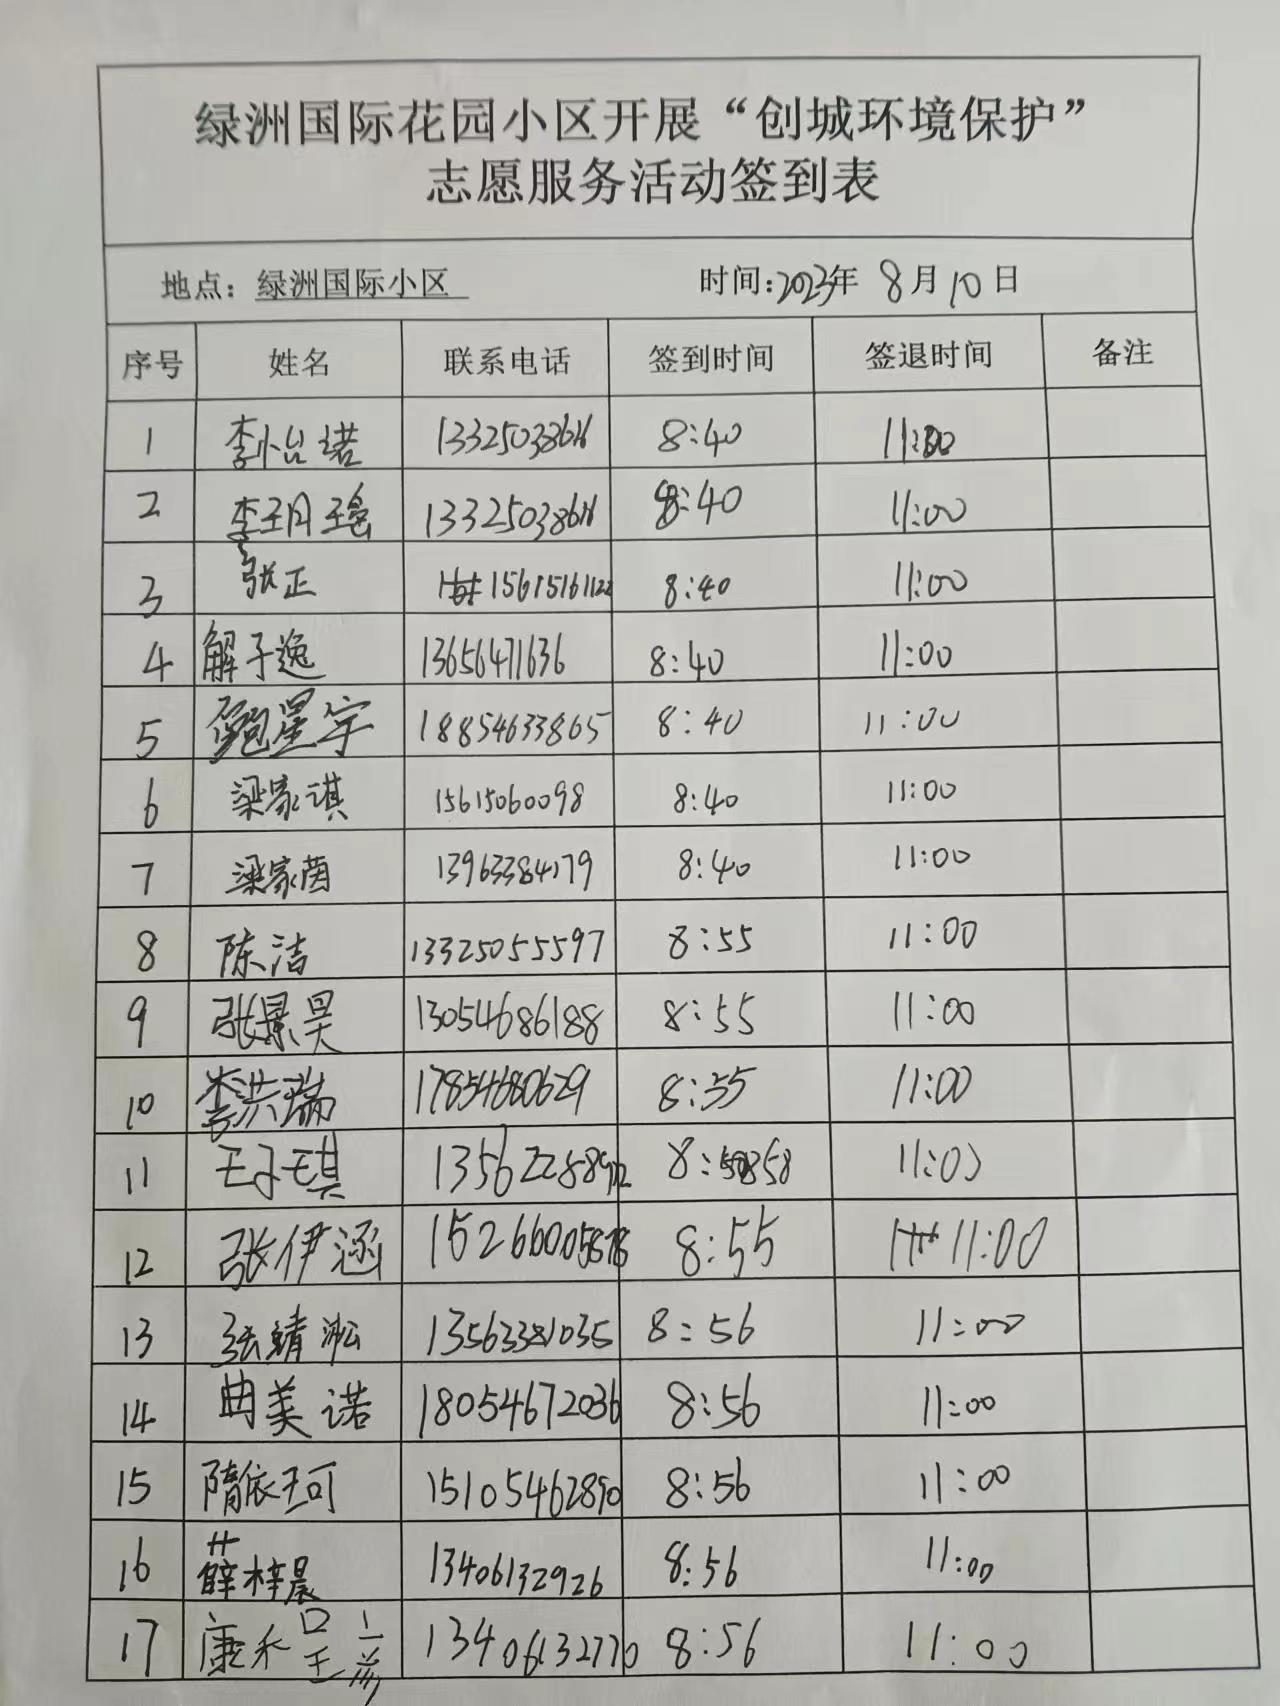 绿洲国际花园小区开展“创城环境保护”
志愿服务活动签到表
地点：绿洲国际小区 时间：2023年 8月10日
序号 姓名 联系电话 签到时间 签退时间 备注
1 李怡诺 8:40 11:00
2 李玥瑶 8:40 11:00
3 张正 15615161122 8:40 11:00
4 解子逸 13656471636 8:40 11:00
5 鲍星宇 18854633865 8:40 11:00
6 梁家淇 15615060098 8:40 11:00
7 梁家茵 13963384179 8:40 11:00
8 陈洁 13325055597 8:55 11:00
9 张景昊 13054686188 8:55 11:00
10 李洪瑞 17854680629 8:55 11:00
11 王子琪 8:58 11:00
12 张伊涵 8:55 11:00
13 张婧淞 13563381035 8:56 11:00
14 曲美诺 18054672036 8:56 11:00
15 隋依珂 8:56 11:00
16 薛梓晨 13406132926 8:56 11:00
17 康禾 13406132770 8:56 11:00